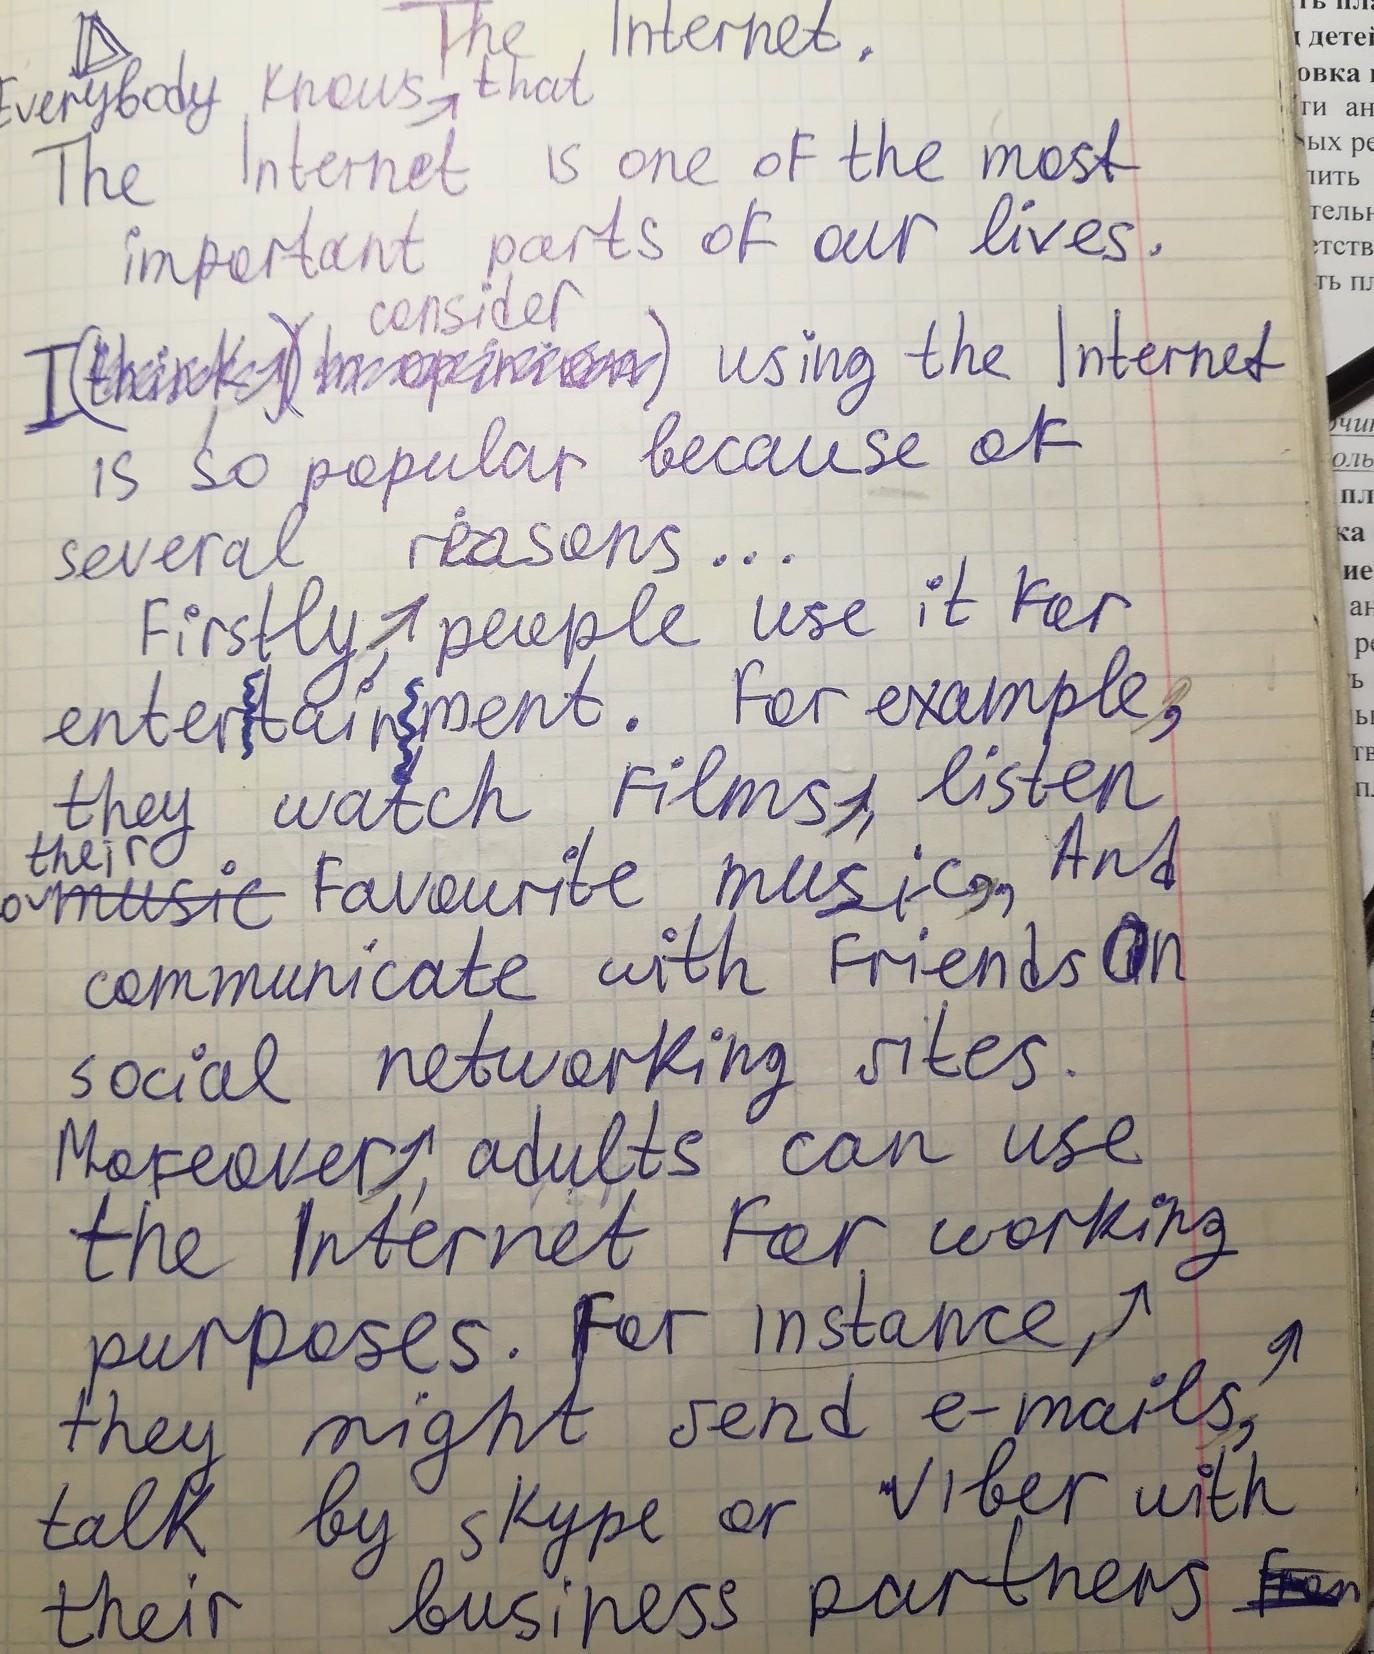 The Internet.
Everybody knows that
The Internet is one of the most
important parts of our lives.
consider
I (think) (In opinion) using the Internet
is so popular because of
several reasons...
Firstly, people use it for
entertainment. For example,
they watch films, listen
their
music favourite music, And
communicate with friends On
social networking sites.
Moreover, adults can use
the Internet for working
purposes. For instance,
they might send e-mails,
talk by skype or Viber with
their business partners from
ть пла
детей
овка
ти ан
ых ре
лить
тельн
етств
ть пл